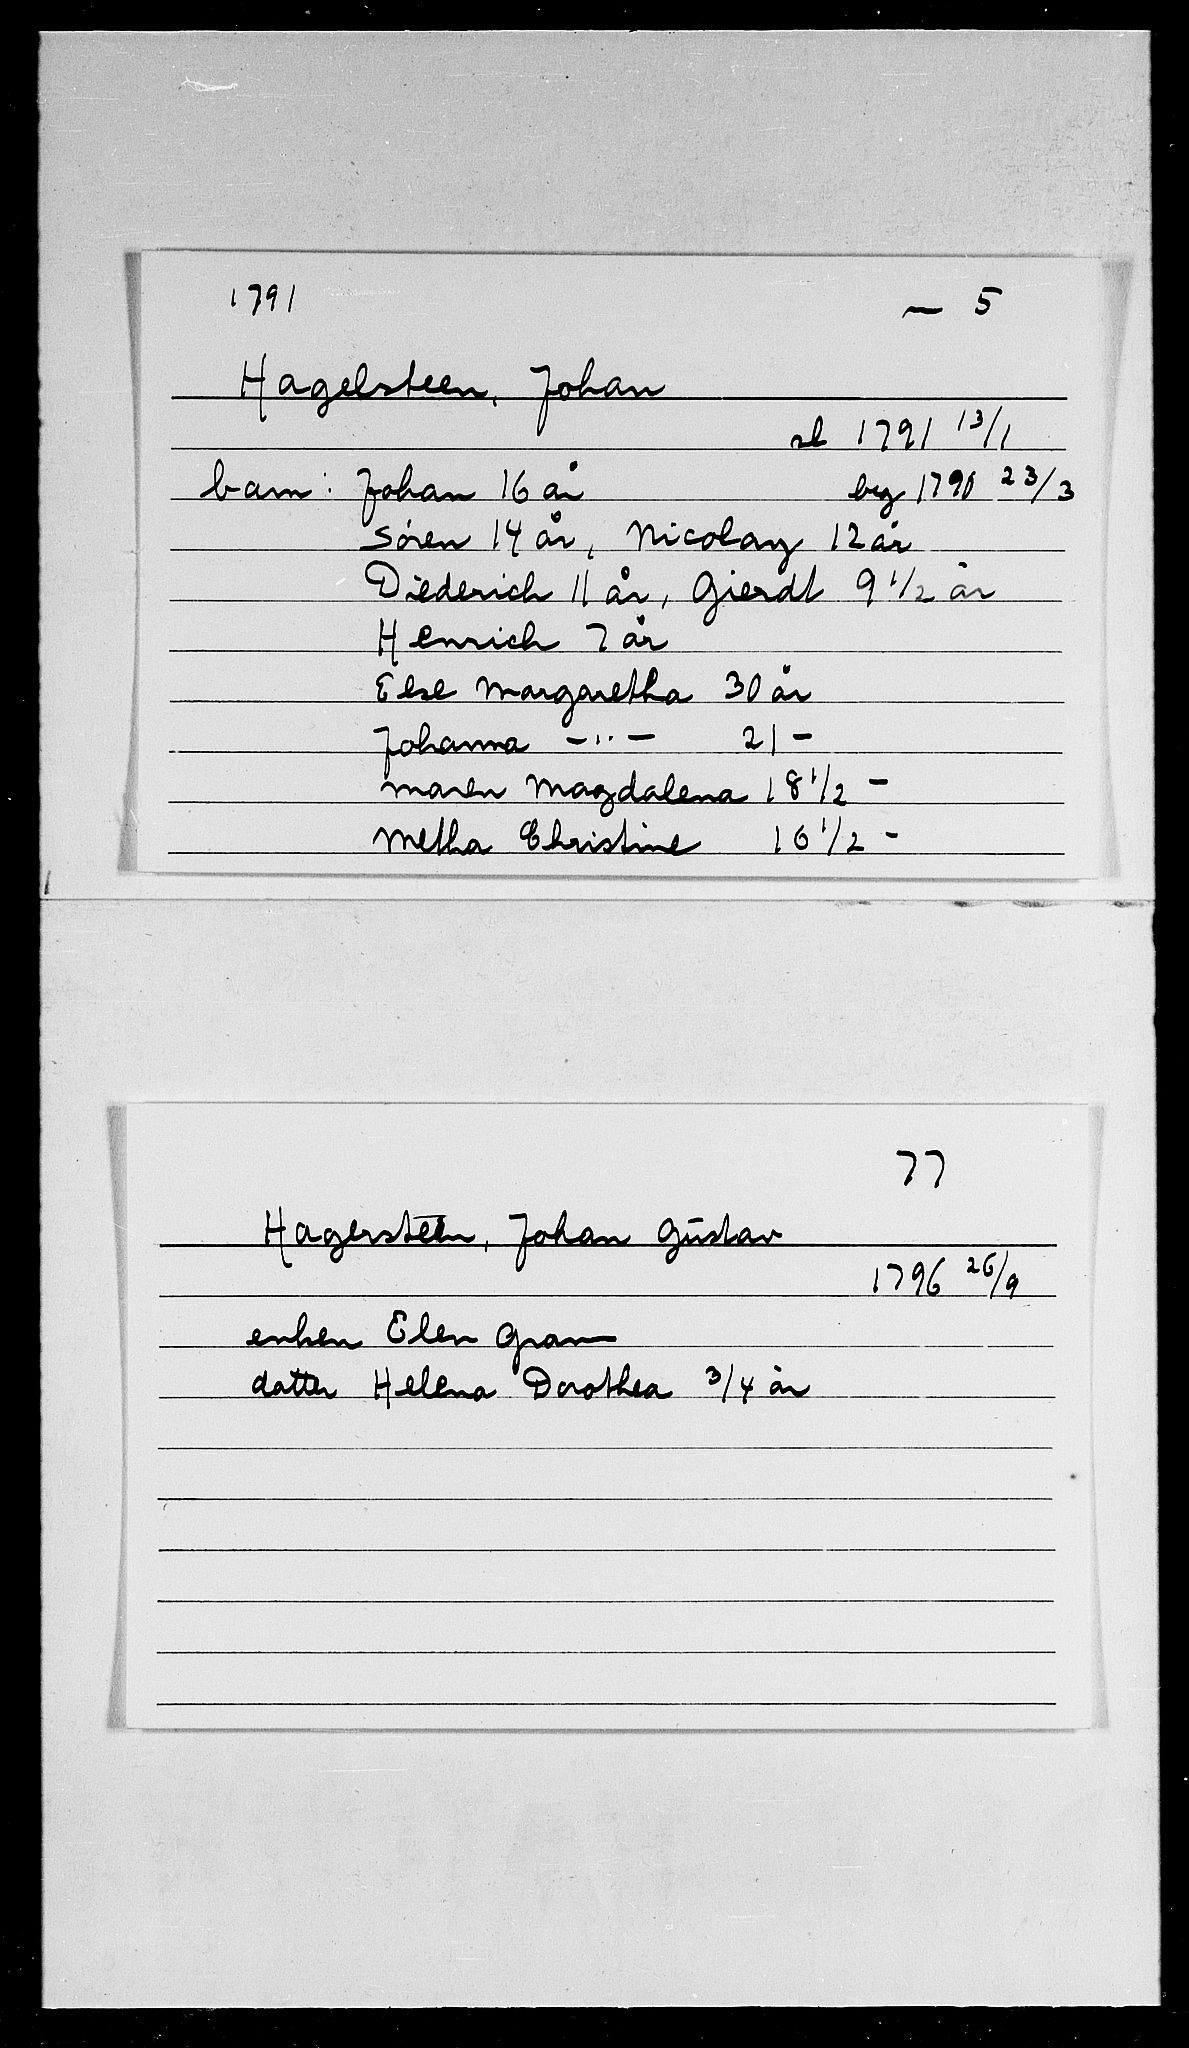 1791 — 5
Hagelsteen, Johan
sl 1791 13/1
barn: Johan 16 år beg 1790 23/3
Sören 14 år, Nicolay 12 år
Diederich 11 år, Gierdt 9 1/2 år
Henrich 7 år
Else Margaretha 30 år
Johanna -"- 21 -
Maren Magdalena 18 1/2 -
Metha Christine 16 1/2 -
77
Hagersteen, Johan Gustav
1796 26/9
enken Elen Gram
datter Helena Dorothea 3/4 år